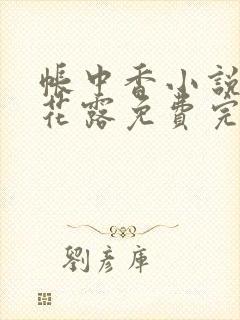 帳中香小說
花露免費完
劉彥庫